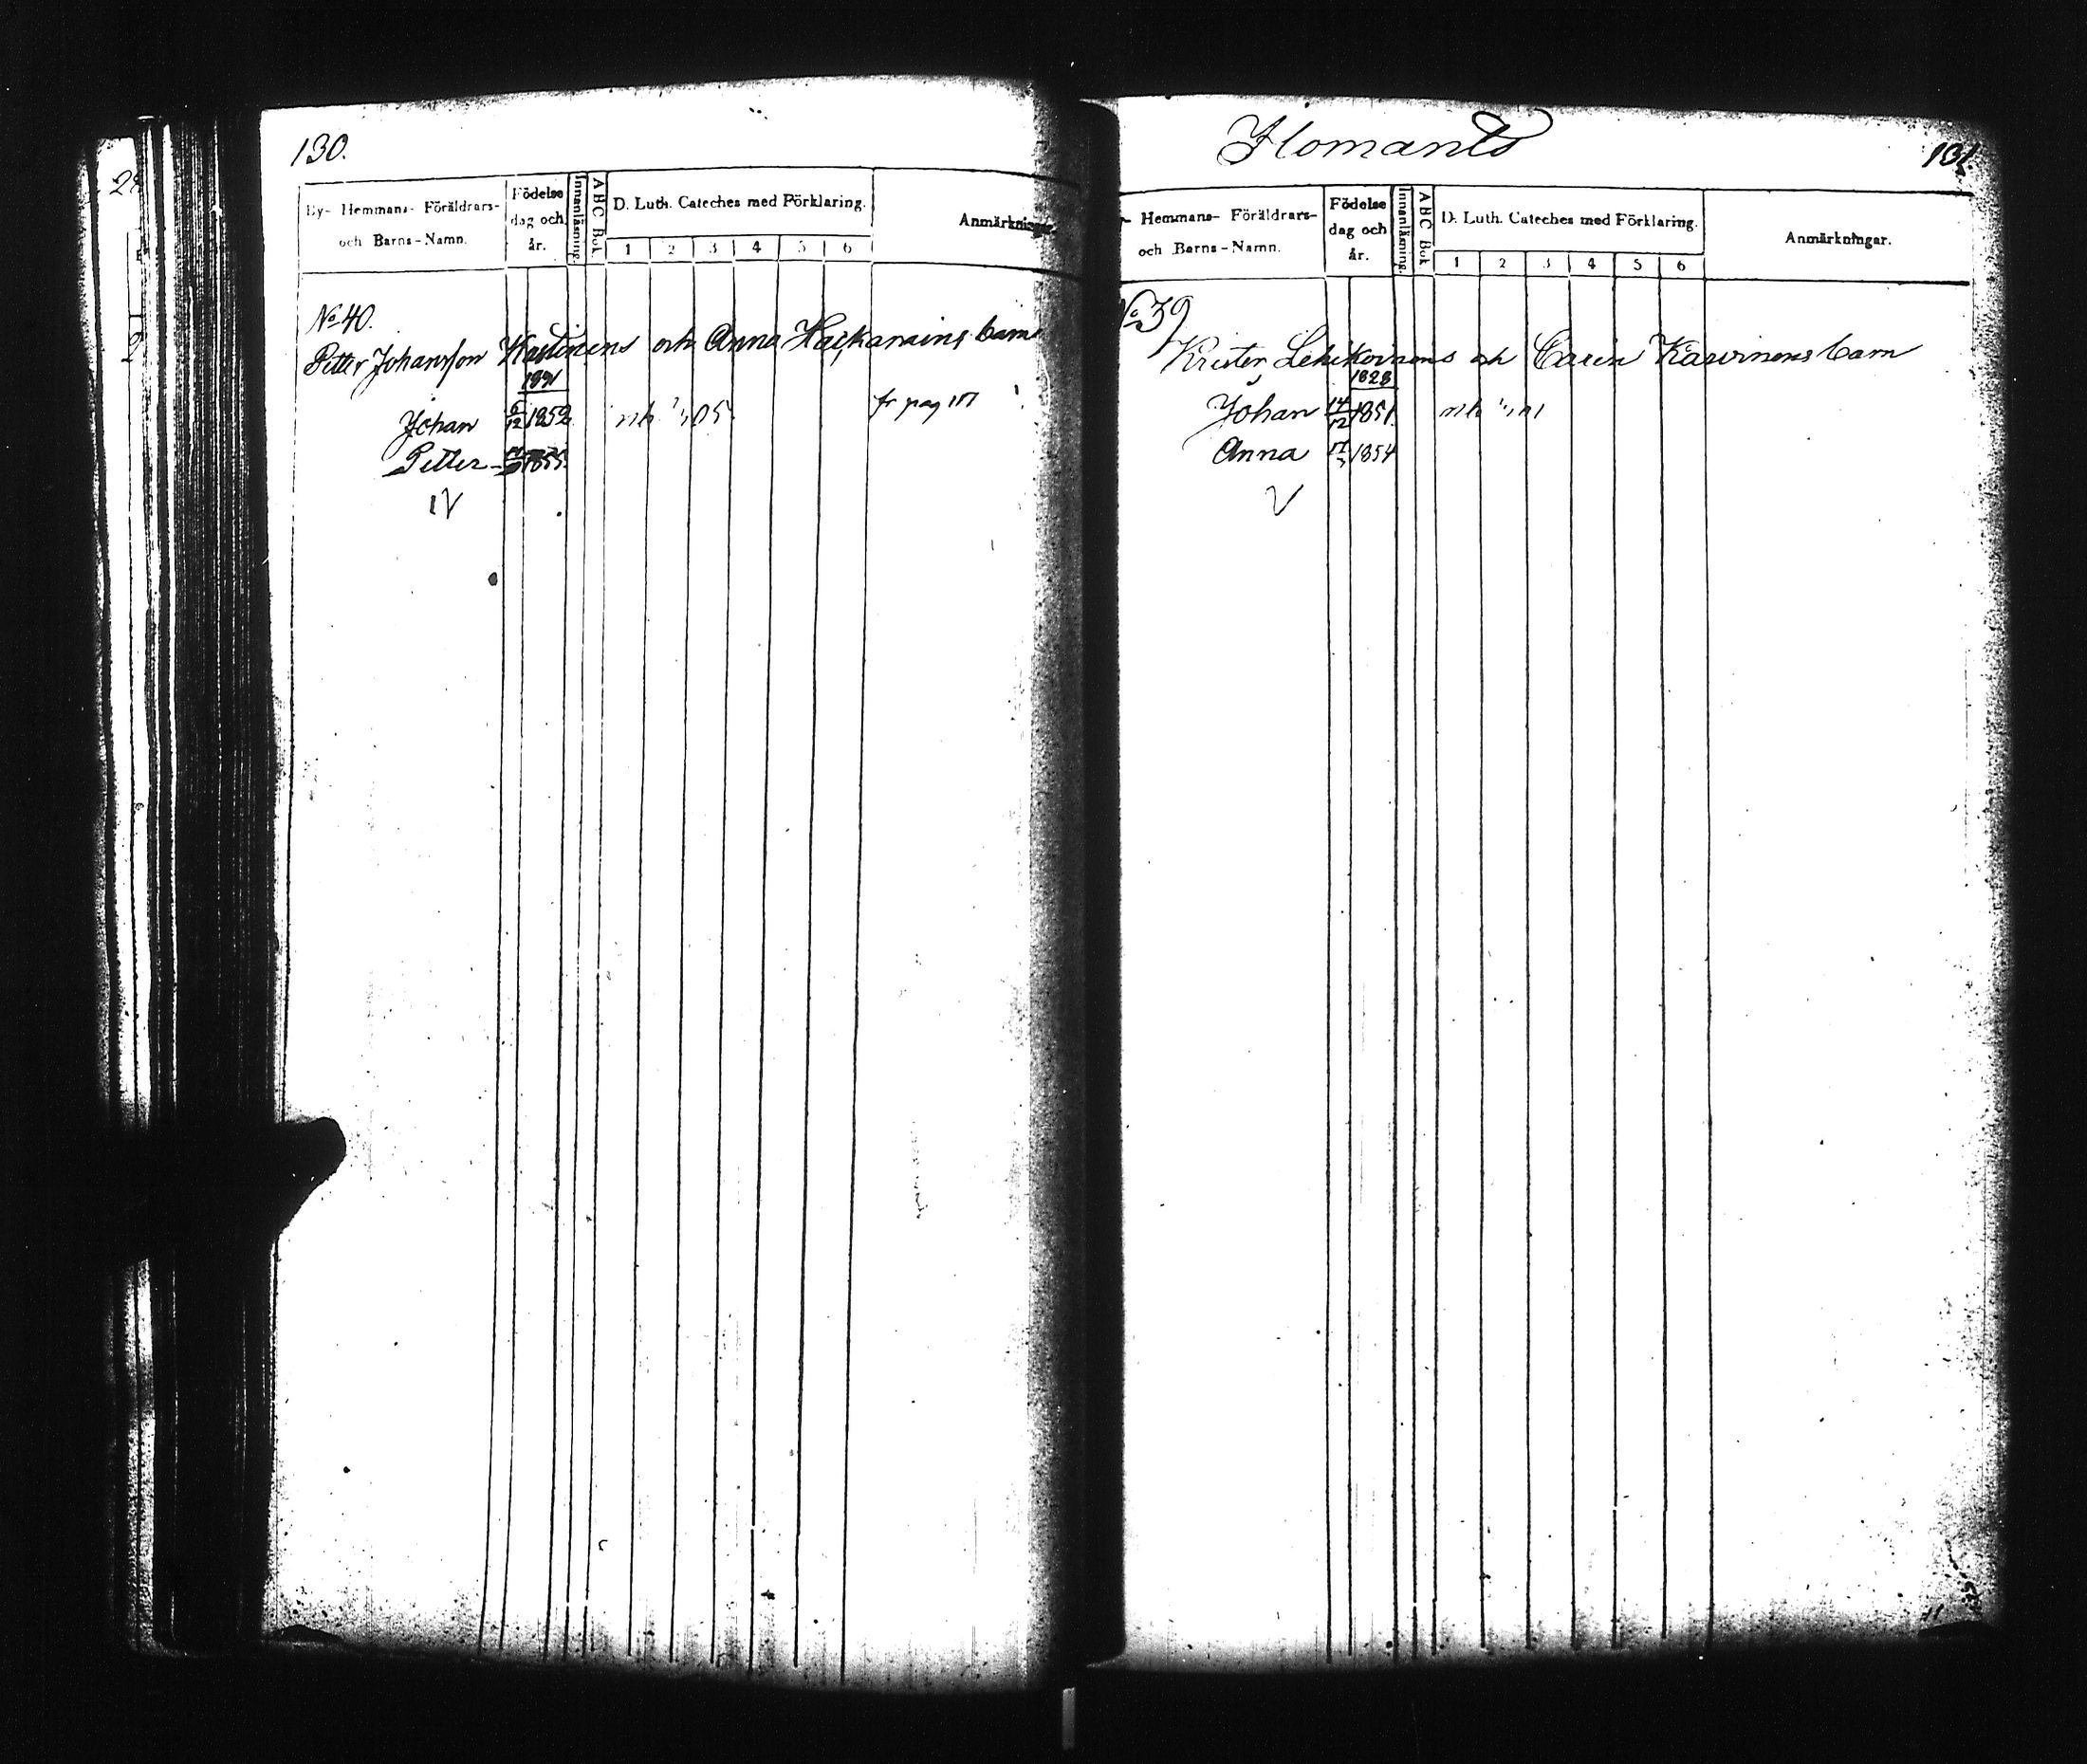 130.
By- Hemmans- Föräldrars-
och Barns-Namn.
Födelse
dag och
år.
Innanläsning.
ABC Bok.
D. Luth. Cateches med Förklaring.
1 2 3 4 5 6
Anmärkningar
No 40.
Petter Johansson och Anna barn
Johan 6/12 1852 fr pag
Petter 1855
Ilomants
131.
Hemmans- Föräldrars-
och Barns-Namn.
Födelse
dag och
år.
Innanläsning.
ABC Bok.
D. Luth. Cateches med Förklaring.
1 2 3 4 5 6
Anmärkningar.
No 39
Krister Lehikoinens och Carin Karvinens barn
1828
Johan 14/12 1851
Anna 1854